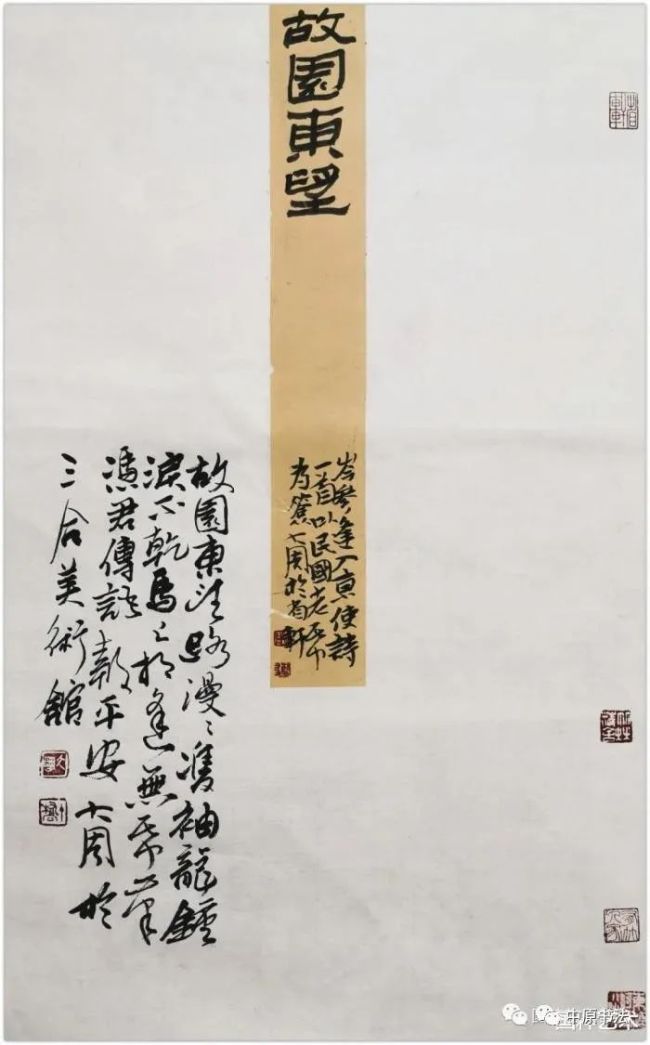 故園東望
岑參逢入京使詩
一首以民國老紙
為簽七周於眉軒
故園東望路漫漫雙袖龍鍾
淚不乾馬上相逢無紙筆
憑君傳語報平安 大周於
三合美術館
中原书法